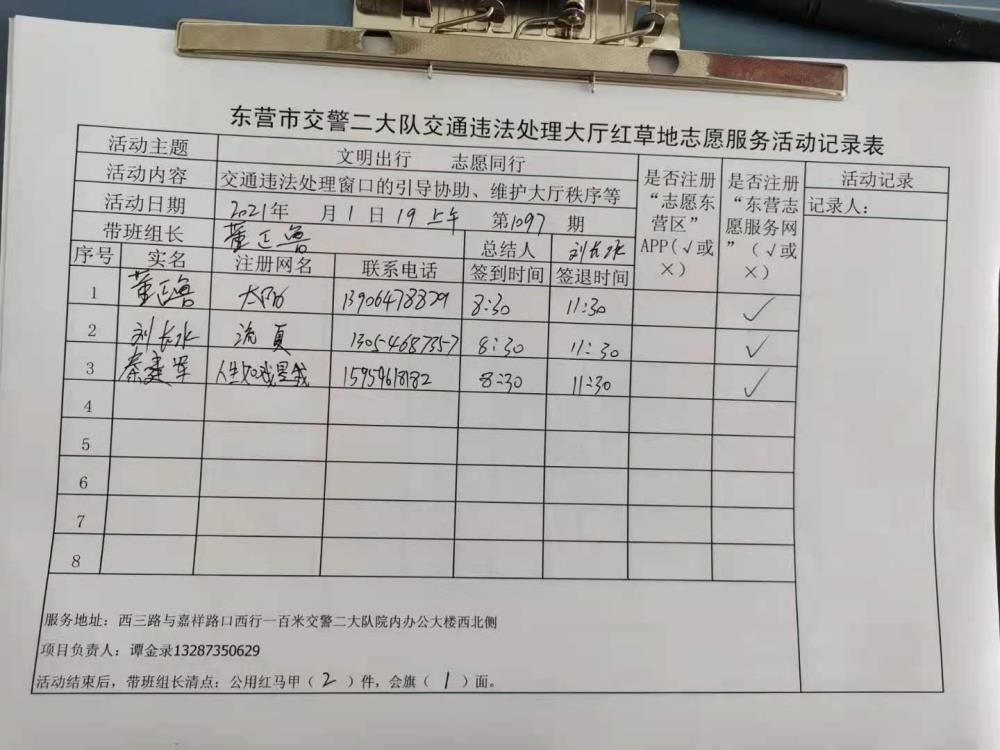 东营市交警二大队交通违法处理大厅红草地志愿服务活动记录表
活动主题 文明出行 志愿同行
活动内容 交通违法处理窗口的引导协助、维护大厅秩序等
活动日期 2021年 月1日19上午 第1097期
带班组长 董正鲁 总结人 刘长水
是否注册“志愿东营区”APP(√或×)
是否注册“东营志愿服务网”(√或×)
活动记录
记录人:
序号 实名 注册网名 联系电话 签到时间 签退时间
1 董正鲁 13906478829 8:30 11:30 ✓
2 刘长水 流夏 13054687357 8:30 11:30 ✓
3 秦建军 15959618182 8:30 11:30 ✓
4
5
6
7
8
服务地址：西三路与嘉祥路口西行一百米交警二大队院内办公大楼西北侧
项目负责人：谭金录13287350629
活动结束后，带班组长清点：公用红马甲（2）件，会旗（1）面。